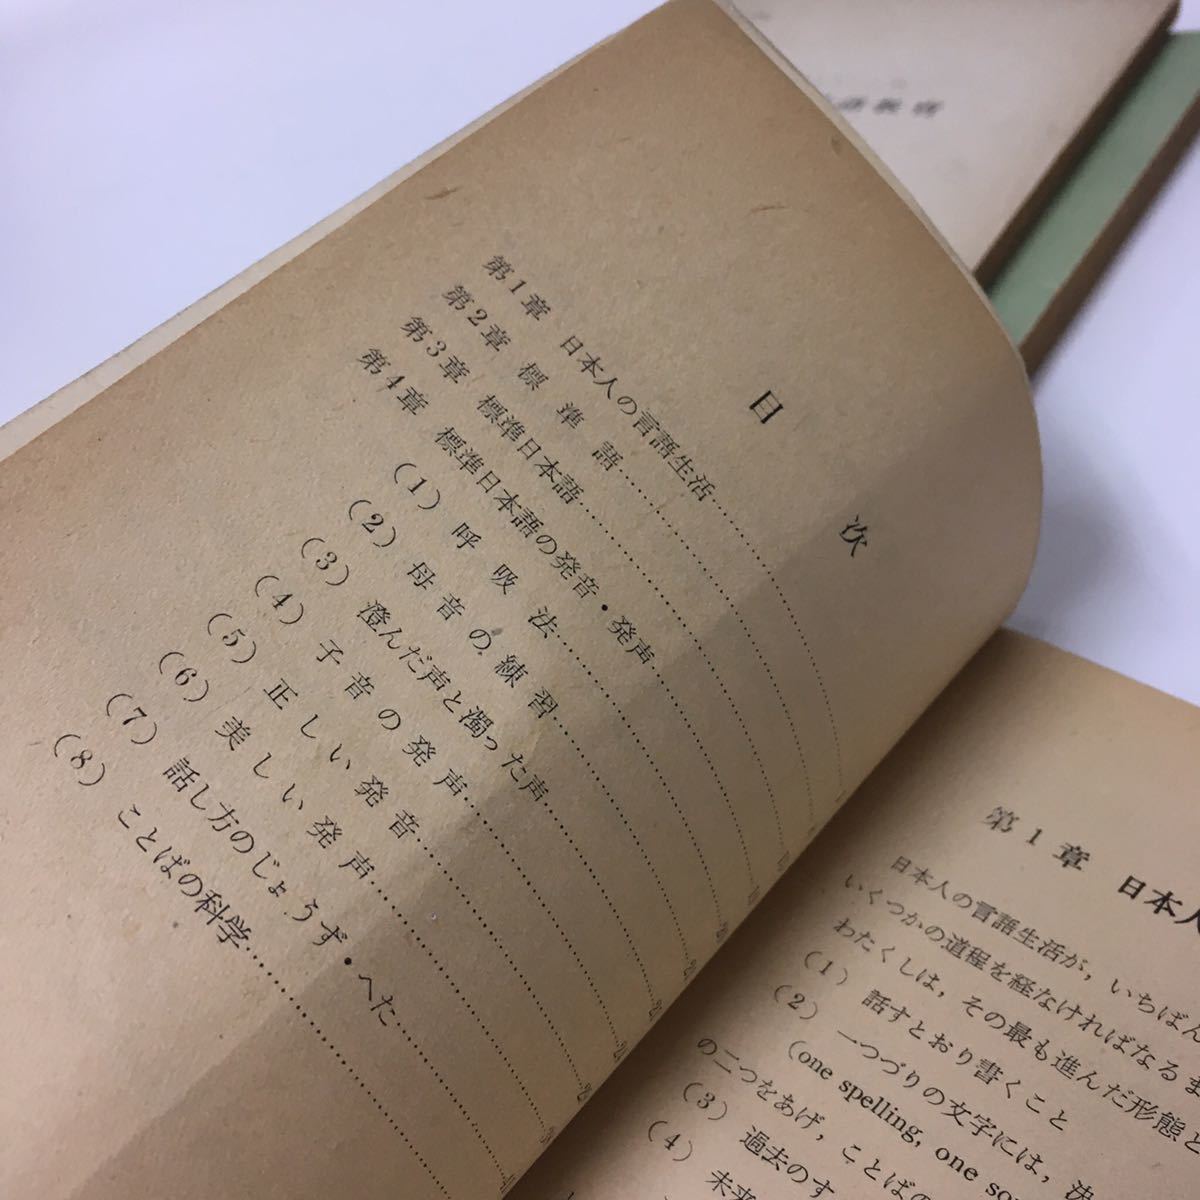 目次
第1章 日本人の言語生活
第2章 標準語
第3章 標準日本語
第4章 標準日本語の発音・発声
(1) 呼吸法
(2) 母音の練習
(3) 澄んだ声と濁った声
(4) 子音の発声
(5) 正しい発音
(6) 美しい発声
(7) 話し方のじょうず・へた
(8) ことばの科学
第1章 日本人
日本人の言語生活が,いちばん
いくつかの道程を経なければなるま
わたくしは,その最も進んだ形態と
(1) 話すとおり書くこと
(2) 一つづりの文字には,決
(one spelling, one so
の二つをあげ,ことばの
(3) 過去のす
(4) 未来